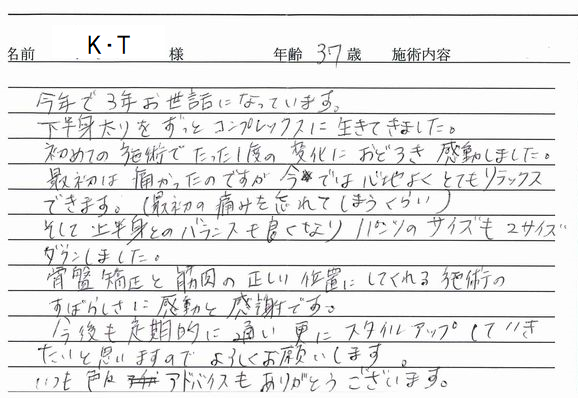 名前 K・T 様 年齢 37歳 施術内容
今年で3年お世話になっています。
下半身太りをずっとコンプレックスに生きてきました。
初めての施術でたった1度の変化におどろき感動しました。
最初は痛かったのですが今では心地よくとてもリラックス
できます。(最初の痛みを忘れてしまうくらい)
そして上半身とのバランスも良くなりパンツのサイズも2サイズ
ダウンしました。
骨盤矯正と筋肉の正しい位置にしてくれる施術の
すばらしさに感動と感謝です。
今後も定期的に通い更にスタイルアップしていき
たいと思いますのでよろしくお願いします。
いつも色々アドバイスもありがとうございます。